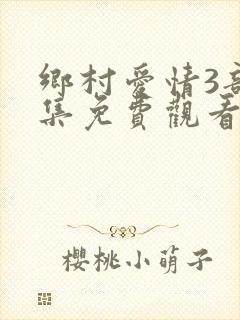 鄉村愛情3
集免費觀看
櫻桃小萌子